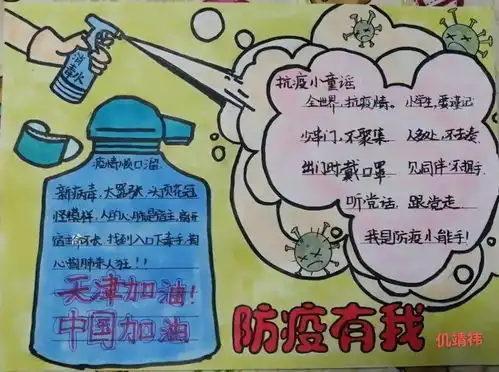 消毒水
抗疫小童谣
全世界,抗疫情。小学生,要谨记
少串门,不聚集 人多处,不去凑
出门时戴口罩 见同伴不握手
听党话,跟党走
我是防疫小能手!
疫情顺口溜
新病毒,太嚣张,头顶花冠
怪模样,人的心肺是宿主,离开
宿主命不长,找到入口下毒手,掏
心掏肺来人狂!!
天津加油!
中国加油
防疫有我
仉靖祎